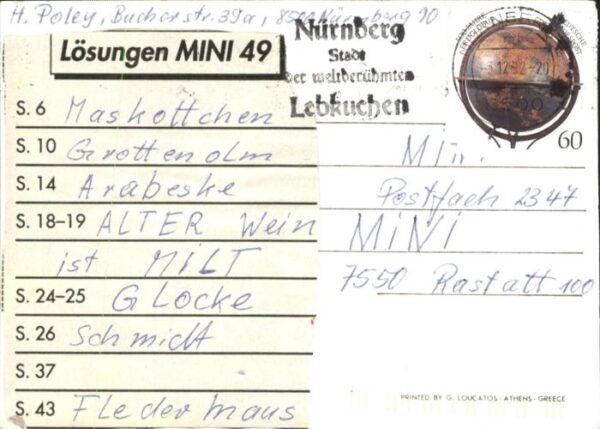 H. Poley, Bucherstr. 39a, 8500 Nürnberg 10
Lösungen MINI 49
Nürnberg
Stadt
der weltberühmten
Lebkuchen
60
S. 6 Maskottchen
S. 10 Grottenolm
S. 14 Arabeske
S. 18-19 ALTER Wein
ist MILT
S. 24-25 GLOCKE
S. 26 Schmidt
S. 37
S. 43 Fledermaus
Postfach 2347
MiNi
7550 Rastatt 100
PRINTED BY G. LOUCATOS - ATHENS - GREECE